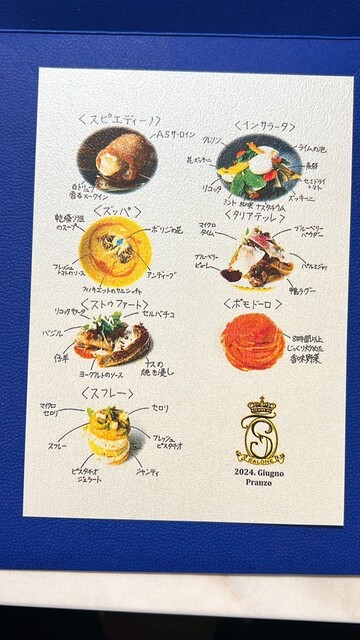 〈スピエディーノ〉
A5サーロイン
白トリュフ
香るメークイン
〈インサラータ〉
クレソン
ライムの泡
花ズッキーニ
リコッタ
セミドライ
トマト
ズッキーニ
ミント 北味 ナスタチウム
〈ズッパ〉
乾燥ソラ豆
のスープ
ボリジの花
フレッシュ
トマトのソース
アンディーブ
フィノキエットのサルシッチャ
〈タリアテッレ〉
マイクロ
タイム
ブルーベリー
パウダー
ブルーベリー
ピューレ
パルミジャーノ
鴨ラグー
〈ストゥファート〉
リコッタサラータ
セルバチコ
バジル
仔羊
ヨーグルトのソース
ナスの
焼き浸し
〈ポモドーロ〉
8時間以上
じっくり炒めた
香味野菜
〈スフレー〉
マイクロ
セロリ
セロリ
スフレー
フレッシュ
ピスタチオ
ピスタチオ
ジェラート
シャンティ
SALONE
2024. Giugno
Pranzo